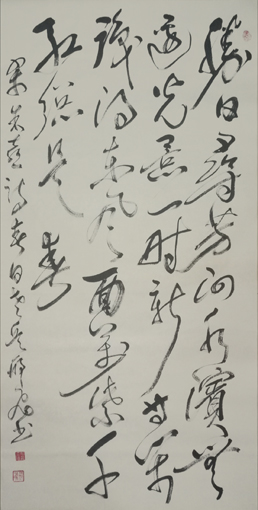 勝日尋芳泗水濱無
邊光景一时新等閒
識得东风面萬紫千
紅總是春
朱熹詩春日 书